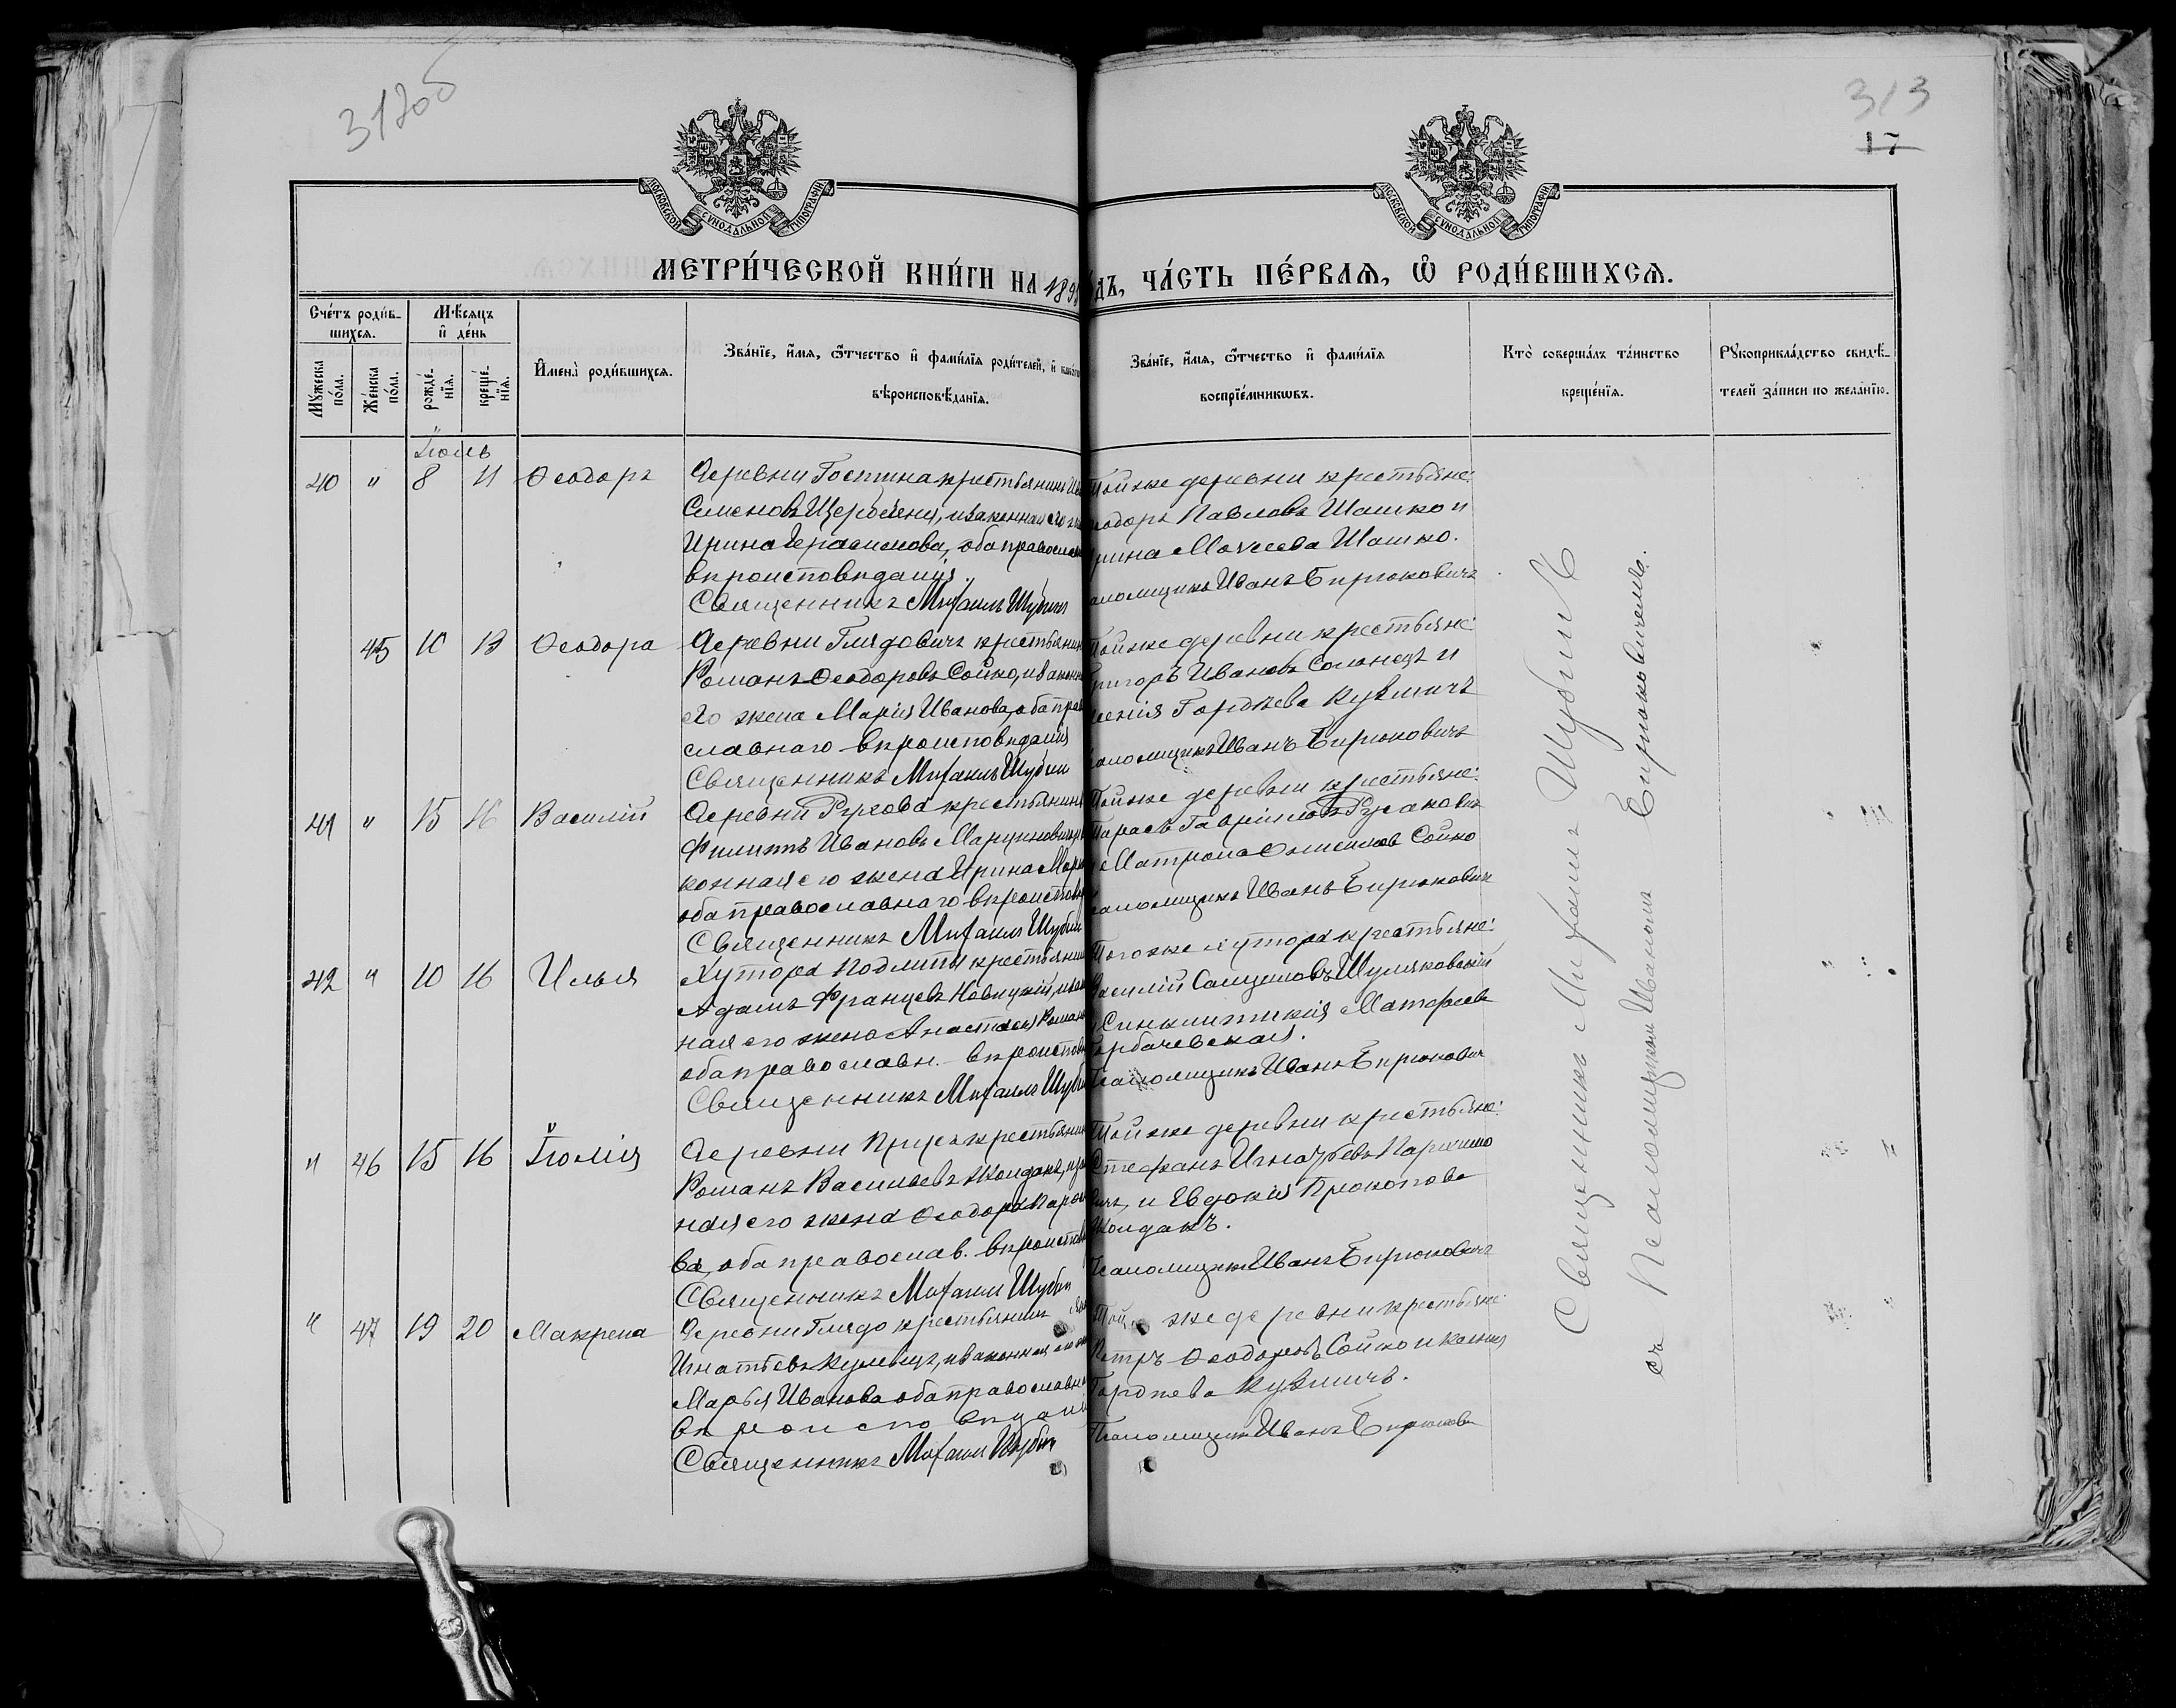 312об
313
17
МОСКОВСКОЙ СѴНОДАЛЬНОЙ ТИПОГРАФІИ
МОСКОВСКОЙ СѴНОДАЛЬНОЙ ТИПОГРАФІИ
МЕТРИ́ЧЕСКОЙ КНИ́ГИ НА 189
ДЪ, ЧА́СТЬ ПЕ́РВАЯ, Ѡ҆ РОДИ́ВШИХСЯ.
Сче́тъ роди́в-
шихся.
Мѣ́сяцъ
и҆ де́нь
Мꙋ́жеска
по́ла.
Же́нска
по́ла.
рожде́-
нїя.
креще́-
нїя.
И҆мена̀ роди́вшихся.
Зва́нїе, и҆́мя, ѻ҆́тчество и҆ фами́лїя роди́телей, и҆
вѣроисповѣ́данїя.
Зва́нїе, и҆́мя, ѻ҆́тчество и҆ фами́лїя
воспрїе́мникѡвъ.
Кто̀ соверша́лъ та́инство
креще́нїя.
Рꙋкоприкла́дство свидѣ́-
телей за́писи по жела́нїю.
Іюль
40 " 8 11 Ѳеодоръ
Деревни Гостина крестьянинъ
Семеновъ Щербеня, и законная его
Ирина Герасимова, оба православ
вѣроисповѣданія.
Священникъ Михаилъ Шубинъ
Той же деревни крестьяне:
еодоръ Павловъ Шашко и
рина Моисеева Шашко.
аломщикъ Иванъ Бирюковичъ
45 10 13 Ѳеодора
Деревни Глядовичъ крестьянинъ
Романъ Ѳеодоровъ Сойко, и законн
его жена Марія Иванова, оба прав
славнаго вѣроисповѣданія
Священникъ Михаилъ Шубин
Той же деревни крестьяне:
Григоръ Ивановъ Солонецъ и
сенія Гордѣева Кузмичъ
аломщикъ Иванъ Бирюковичъ
41 " 15 16 Василій
Деревни Рухова крестьянинъ
Филиппъ Ивановъ Марцинович
конная его жена Ирина Марк
оба православнаго вѣроисповѣ
Священникъ Михаилъ Шубин
Той же деревни крестьяне:
Тарасъ Гавріиловъ Русакович
и Матрона Сойко
аломщикъ Иванъ Бирюкович
42 " 10 16 Илья
Хутора Подлипы крестьянин
Адамъ Францевъ Новицкій, и зак
ная его жена Анастасія Роман
оба православн. вѣроиспов
Священникъ Михаилъ Шуби
Того же хутора крестьяне:
Василій Шуляковскій
и Синклитикія Матфеева
Горбачевская.
Псаломщикъ Иванъ Бирюкович
" 46 15 16 Іюлія
Деревни Прусы крестьянин
Романъ Васильевъ Жолдакъ, и за
ная его жена Ѳеодора Парѳе
ва, оба православ. вѣроиспов
Священникъ Михаилъ Шубин
Той же деревни крестьяне:
Стефанъ Игнатьевъ
ичъ, и Евдокія Прокопова
Жолдакъ.
Псаломщикъ Иванъ Бирюкович
" 47 19 20 Макрена
Деревни Глядо крестьянинъ
Игнатьевъ и законная его
Марья Иванова оба православн
вѣроисповѣдані
Священникъ Михаилъ Шубин
Той же деревни крестьяне:
Петръ Ѳеодоровъ Сойко и Ксенія
Гордѣева Кузмичъ.
Псаломщикъ Иванъ Бирюкови
Священникъ Михаилъ Шубинъ
съ Псаломщикомъ Иваномъ Бирюковичемъ.